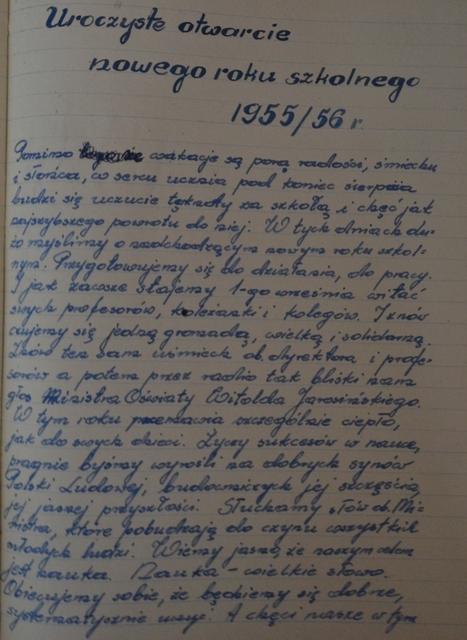 Uroczyste otwarcie
nowego roku szkolnego
1955/56 r.
Pomimo wakacje są porą radości, śmiechu
i słońca, w sercu ucznia pod koniec sierpnia
budzi się uczucie tęknoty za szkołą i chęć jak
najszybszego powrotu do niej. W tych dniach du-
żo myślimy o nadchodzącym nowym roku szkol-
nym. Przygotowujemy się do działania, do pracy.
I jak zawsze stajemy 1-go września witać
swych profesorów, koleżanki i kolegów. I znów
czujemy się jedną gromadą, wielką i solidarną.
Znów ten sam uśmiech ob. dyrektora i profe-
sorów a potem przez radio tak bliski nam
głos Ministra Oświaty Witolda Jarosińskiego.
W tym roku przemawia szczególnie ciepło,
jak do swych dzieci. Życzy sukcesów w nauce,
pragnie byśmy wyrośli na dobrych synów
Polski Ludowej, budowniczych jej szczęścia,
jej jasnej przyszłości. Słuchamy słów ob. Mi-
nistra, które pobudzają do czynu wszystkich
młodych ludzi. Wiemy jasno, że naszym celem
jest nauka. Nauka - wielkie słowo.
Obiecujemy sobie, że będziemy się dobrze,
systematycznie uczyć. A chęci nasze w tym